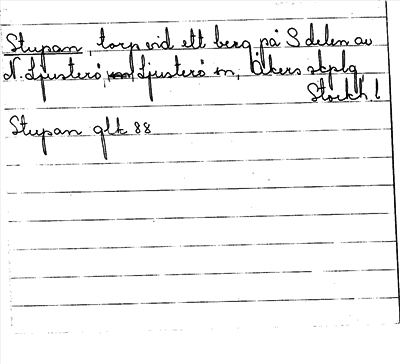 Stupan, torp vid ett berg på S delen av
N. Ljusterö, Ljusterö sn, Åkers skplg
Stockh. l
Stupan glk 88